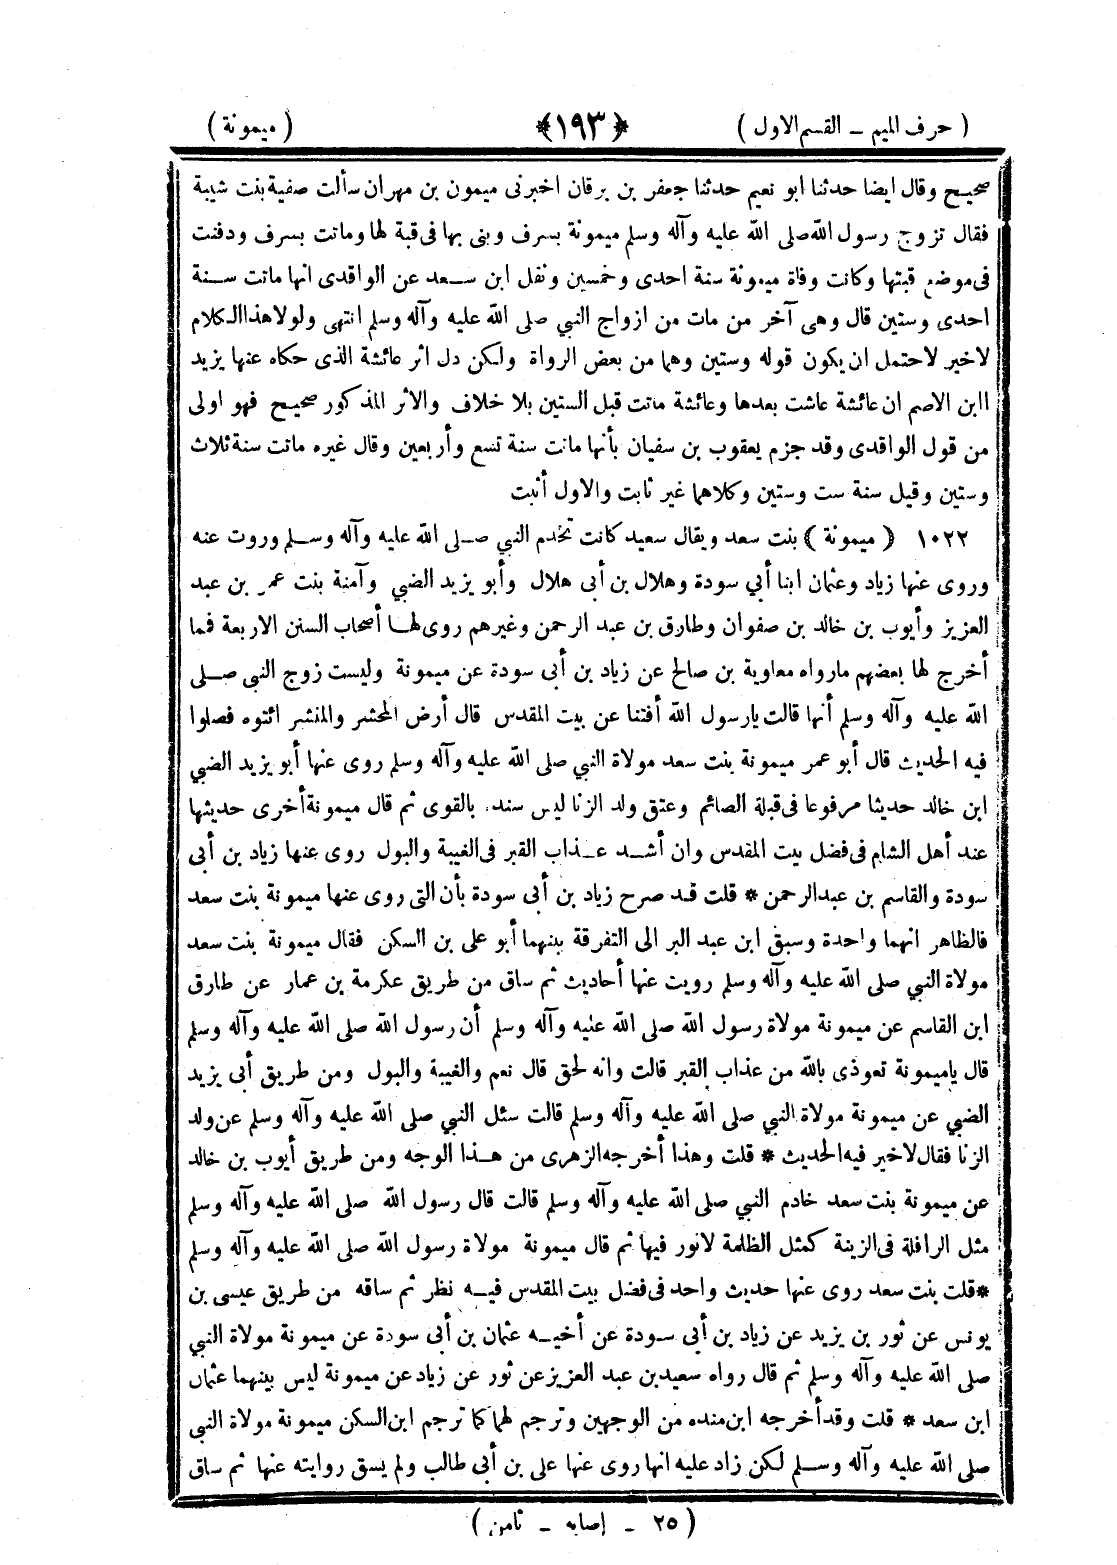 ( حرف الميم ـ القسم الاول ) ﴿ ١٩٣ ﴾ ( ميمونة )
صحيح وقال ايضا حدثنا ابو نعيم حدثنا جعفر بن برقان اخبرنى ميمون بن مهران سألت صفية بنت شيبة
فقال تزوج رسول الله صلى الله عليه وآله وسلم ميمونة بسرف وبنى بها فى قبة لها وماتت بسرف ودفنت
فى موضع قبتها وكانت وفاة ميمونة سنة احدى وخمسين ونقل ابن سعد عن الواقدى انها ماتت سنة
احدى وستين قال وهى آخر من مات من ازواج النبي صلى الله عليه وآله وسلم انتهى ولولا هذا الكلام
لاخير لاحتمل ان يكون قوله وستين وهما من بعض الرواة ولكن دل اثر عائشة الذى حكاه عنها يزيد
اابن الاصم ان عائشة عاشت بعدها وعائشة ماتت قبل الستين بلا خلاف والاثر المذكور صحيح فهو اولى
من قول الواقدى وقد جزم يعقوب بن سفيان بأنها ماتت سنة تسع وأربعين وقال غيره ماتت سنة ثلاث
وستين وقيل سنة ست وستين وكلاهما غير ثابت والاول أثبت
١٠٢٢ ﴿ ميمونة ﴾ بنت سعد ويقال سعيد كانت تخدم النبي صلى الله عليه وآله وسلم وروت عنه
وروى عنها زياد وعثمان ابنا أبي سودة وهلال بن أبى هلال وأبو يزيد الضبي وآمنة بنت عمر بن عبد
العزيز وأيوب بن خالد بن صفوان وطارق بن عبد الرحمن وغيرهم روى لها أصحاب السنن الاربعة فمما
أخرج لها بعضهم مارواه معاوية بن صالح عن زياد بن أبى سودة عن ميمونة وليست زوج النبى صلى
الله عليه وآله وسلم أنها قالت يارسول الله أفتنا عن بيت المقدس قال أرض المحشر والمنشر ائتوه فصلوا
فيه الحديث قال أبو عمر ميمونة بنت سعد مولاة النبي صلى الله عليه وآله وسلم روى عنها أبو يزيد الضبي
ابن خالد حديثا مرفوعا فى قبلة الصائم وعتق ولد الزنا ليس سنده بالقوى ثم قال ميمونة أخرى حديثها
عند أهل الشام فى فضل بيت المقدس وان أشد عذاب القبر فى الغيبة والبول روى عنها زياد بن أبى
سودة والقاسم بن عبدالرحمن * قلت قد صرح زياد بن أبى سودة بأن التى روى عنها ميمونة بنت سعد
فالظاهر انهما واحدة وسبق ابن عبد البر الى التفرقة بينهما أبو على بن السكن فقال ميمونة بنت سعد
مولاة النبي صلى الله عليه وآله وسلم رويت عنها أحاديث ثم ساق من طريق عكرمة بن عمار عن طارق
ابن القاسم عن ميمونة مولاة رسول الله صلى الله عليه وآله وسلم أن رسول الله صلى الله عليه وآله وسلم
قال ياميمونة تعوذى بالله من عذاب القبر قالت وانه لحق قال نعم والغيبة والبول ومن طريق أبى يزيد
الضبي عن ميمونة مولاة النبي صلى الله عليه وآله وسلم قالت سئل النبي صلى الله عليه وآله وسلم عن ولد
الزنا فقال لاخير فيه الحديث * قلت وهذا أخرجه الزهرى من هذا الوجه ومن طريق أيوب بن خالد
عن ميمونة بنت سعد خادم النبي صلى الله عليه وآله وسلم قالت قال رسول الله صلى الله عليه وآله وسلم
مثل الرافلة فى الزينة كمثل الظلمة لانور فيها ثم قال ميمونة مولاة رسول الله صلى الله عليه وآله وسلم
*قلت بنت سعد روى عنها حديث واحد فى فضل بيت المقدس فيه نظر ثم ساقه من طريق عيسى بن
يونس عن ثور بن يزيد عن زياد بن أبى سودة عن أخيه عثمان بن أبى سودة عن ميمونة مولاة النبي
صلى الله عليه وآله وسلم ثم قال رواه سعيد بن عبد العزيز عن ثور عن زياد عن ميمونة ليس بينهما عثمان
ابن سعد * قلت وقد أخرجه ابن منده من الوجهين وترجم لهما كما ترجم ابن السكن ميمونة مولاة النبى
صلى الله عليه وآله وسلم لكن زاد عليه انها روى عنها على بن أبي طالب ولم يسق روايته عنها ثم ساق
( ٢٥ ـ إصابه ـ ثامن )